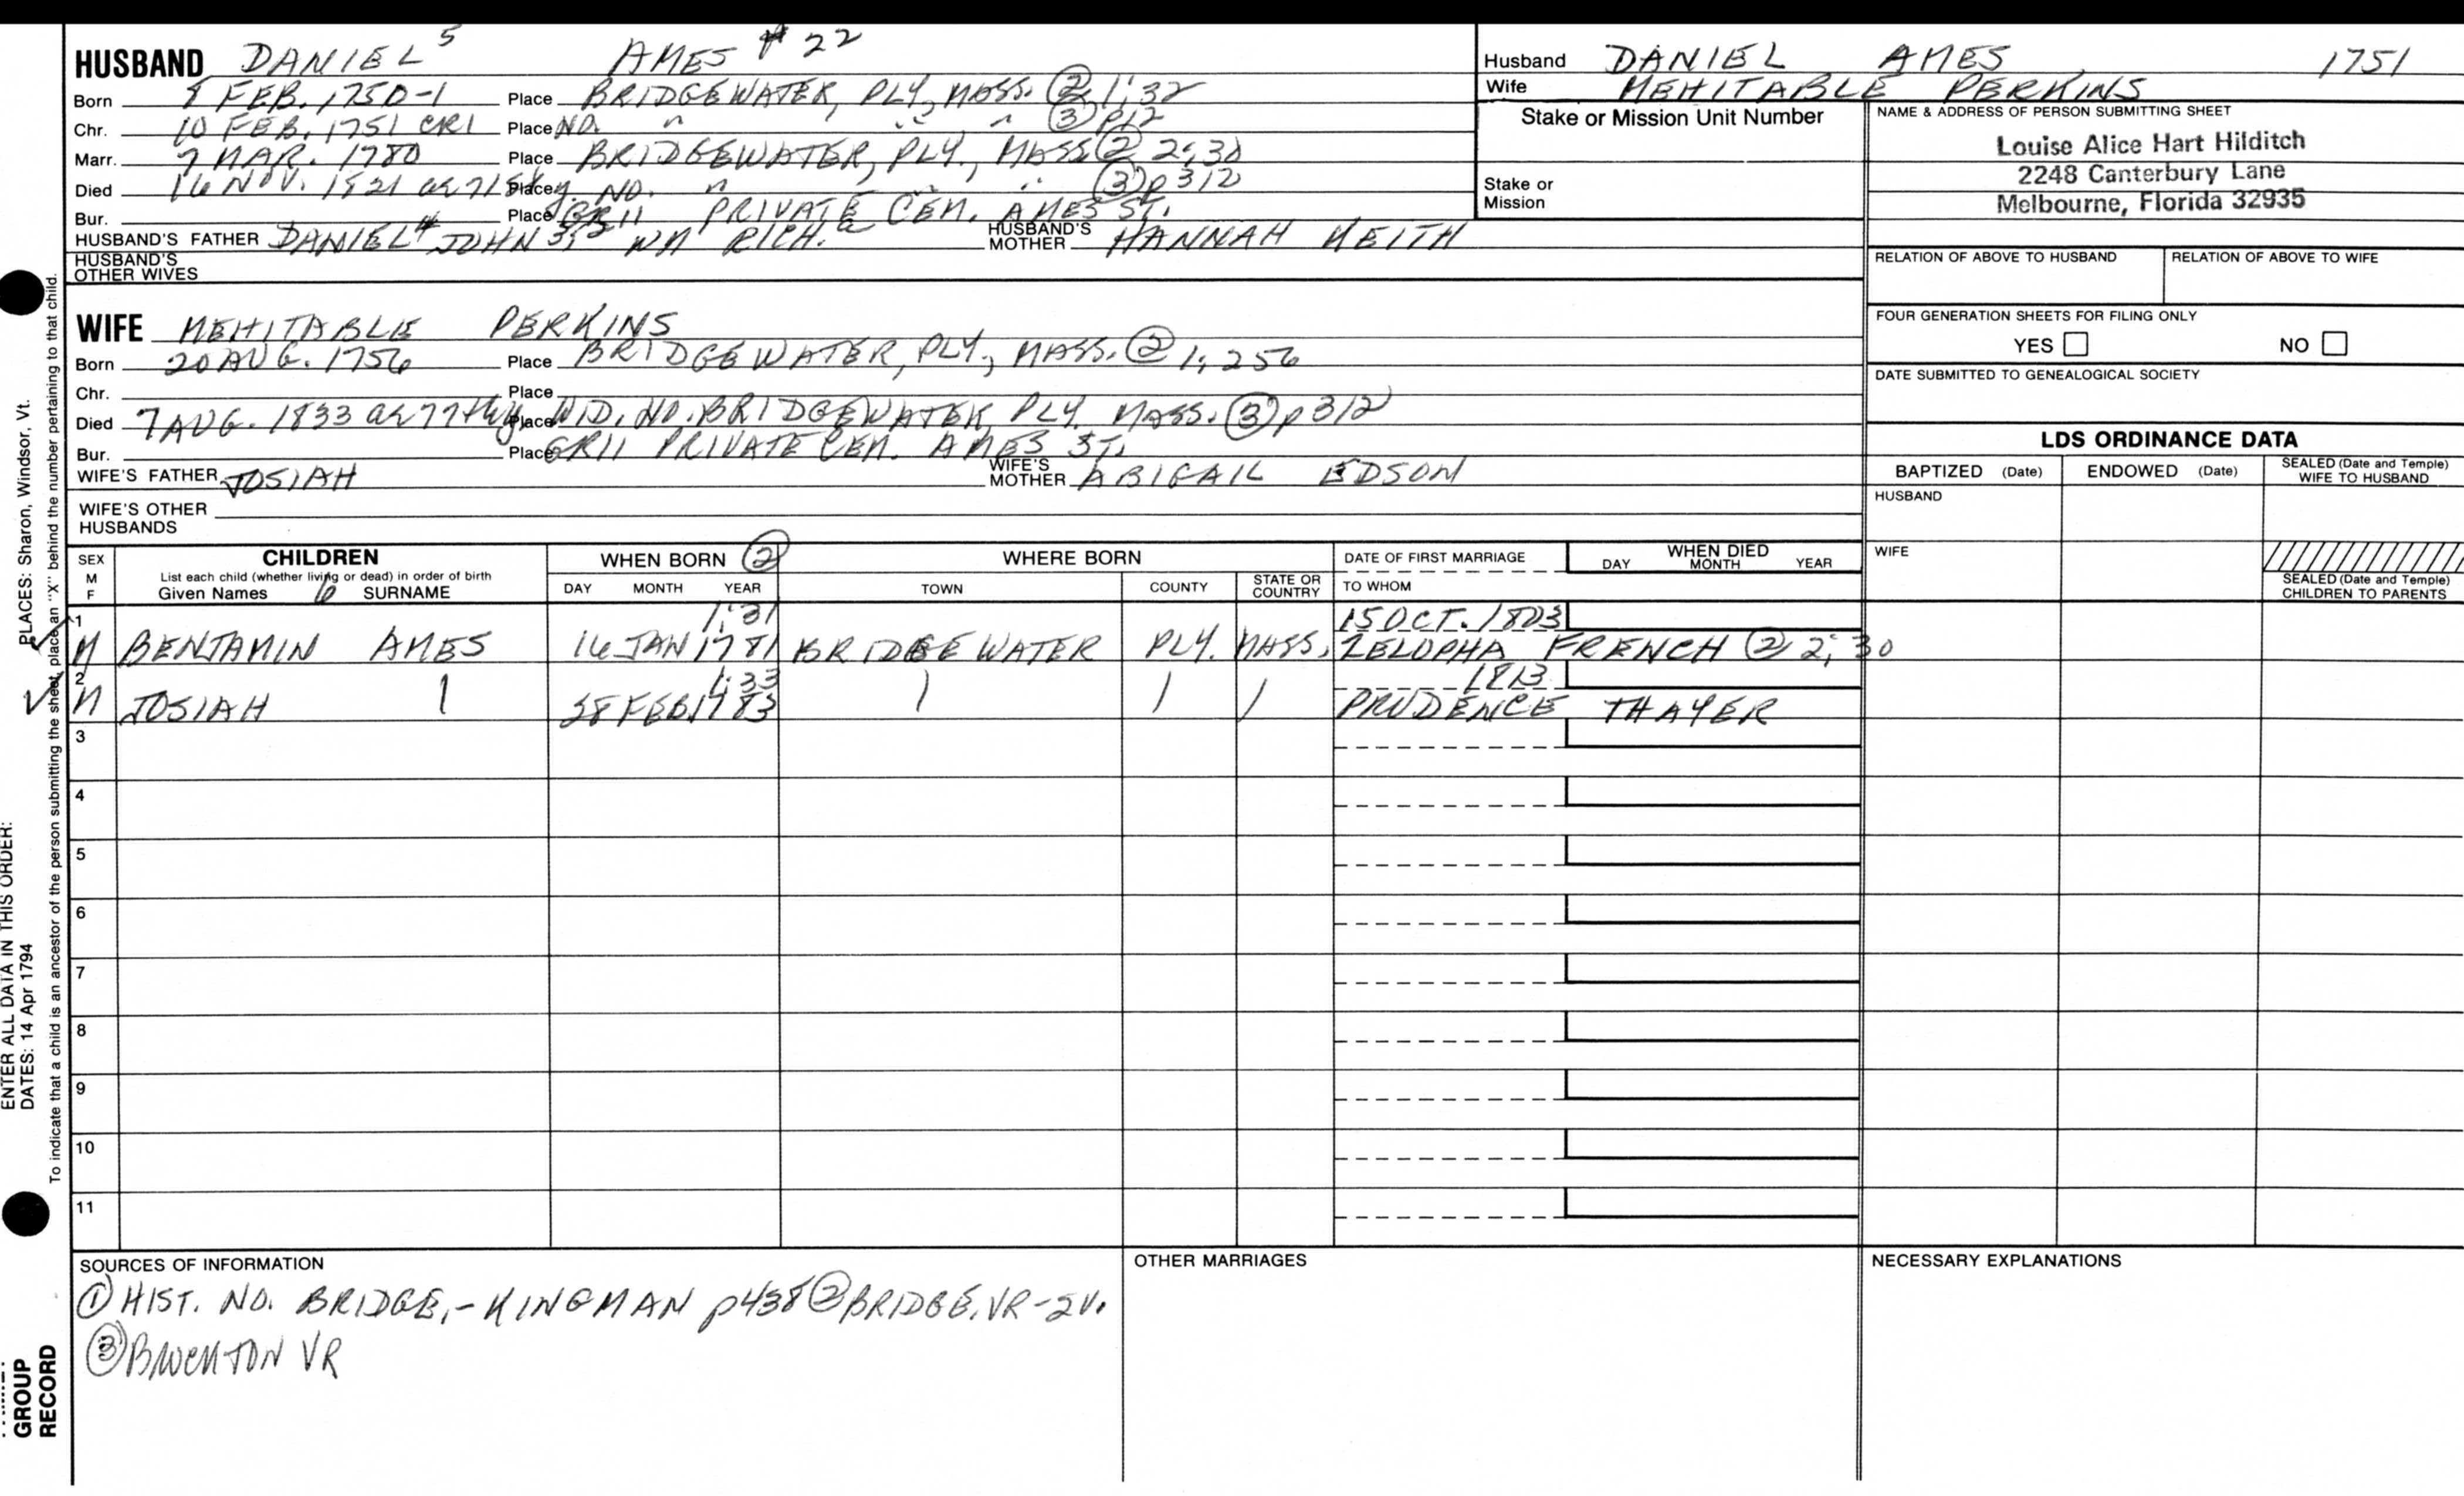 HUSBAND DANIEL 5 AMES # 22
Born 8 FEB. 1750-1 Place BRIDGEWATER, PLY, MASS. ② 1; 32
Chr. 10 FEB. 1751 CR1 Place NO. " " " ③ p12
Marr. 7 MAR. 1780 Place BRIDGEWATER, PLY., MASS ② 2; 30
Died 16 NOV. 1821 Place NO. " " " ③ p 312
Bur. Place GR11 PRIVATE CEM. AMES ST.
HUSBAND'S FATHER DANIEL 4 JOHN 3, 2 WM RICH. HUSBAND'S MOTHER HANNAH KEITH
HUSBAND'S OTHER WIVES
Husband DANIEL AMES 1751
Wife MEHITABLE PERKINS
Stake or Mission Unit Number
Stake or Mission
NAME & ADDRESS OF PERSON SUBMITTING SHEET
Louise Alice Hart Hilditch
2248 Canterbury Lane
Melbourne, Florida 32935
RELATION OF ABOVE TO HUSBAND RELATION OF ABOVE TO WIFE
FOUR GENERATION SHEETS FOR FILING ONLY
YES NO
DATE SUBMITTED TO GENEALOGICAL SOCIETY
WIFE MEHITABLE PERKINS
Born 20 AUG. 1756 Place BRIDGEWATER, PLY., MASS. ② 1; 256
Chr. Place
Died 7 AUG. 1833 Place WID. NO. BRIDGEWATER, PLY. MASS. ③ p 312
Bur. Place GR11 PRIVATE CEM. AMES ST.
WIFE'S FATHER JOSIAH WIFE'S MOTHER ABIGAIL EDSON
WIFE'S OTHER HUSBANDS
LDS ORDINANCE DATA
BAPTIZED (Date) ENDOWED (Date) SEALED (Date and Temple) WIFE TO HUSBAND
HUSBAND
WIFE
SEALED (Date and Temple) CHILDREN TO PARENTS
SEX M F
CHILDREN
List each child (whether living or dead) in order of birth
Given Names 6 SURNAME
WHEN BORN ②
DAY MONTH YEAR
WHERE BORN
TOWN COUNTY STATE OR COUNTRY
DATE OF FIRST MARRIAGE
TO WHOM
WHEN DIED
DAY MONTH YEAR
1 1; 31 15 OCT. 1803
M BENJAMIN AMES 16 JAN 1781 BRIDGEWATER PLY. MASS. ZELOPHA FRENCH ② 2; 30
2 1; 33 1813
M JOSIAH 28 FEB. 1783 PRUDENCE THAYER
3
4
5
6
7
8
9
10
11
SOURCES OF INFORMATION
① HIST. NO. BRIDGE, - KINGMAN p438 ② BRIDGE. VR - 2V.
③ BROCKTON VR
OTHER MARRIAGES
NECESSARY EXPLANATIONS
PLACES: Sharon, Windsor, Vt.
ENTER ALL DATA IN THIS ORDER:
DATES: 14 Apr 1794
To indicate that a child is an ancestor of the person submitting the sheet, place an "X" behind the number pertaining to that child.
GROUP
RECORD